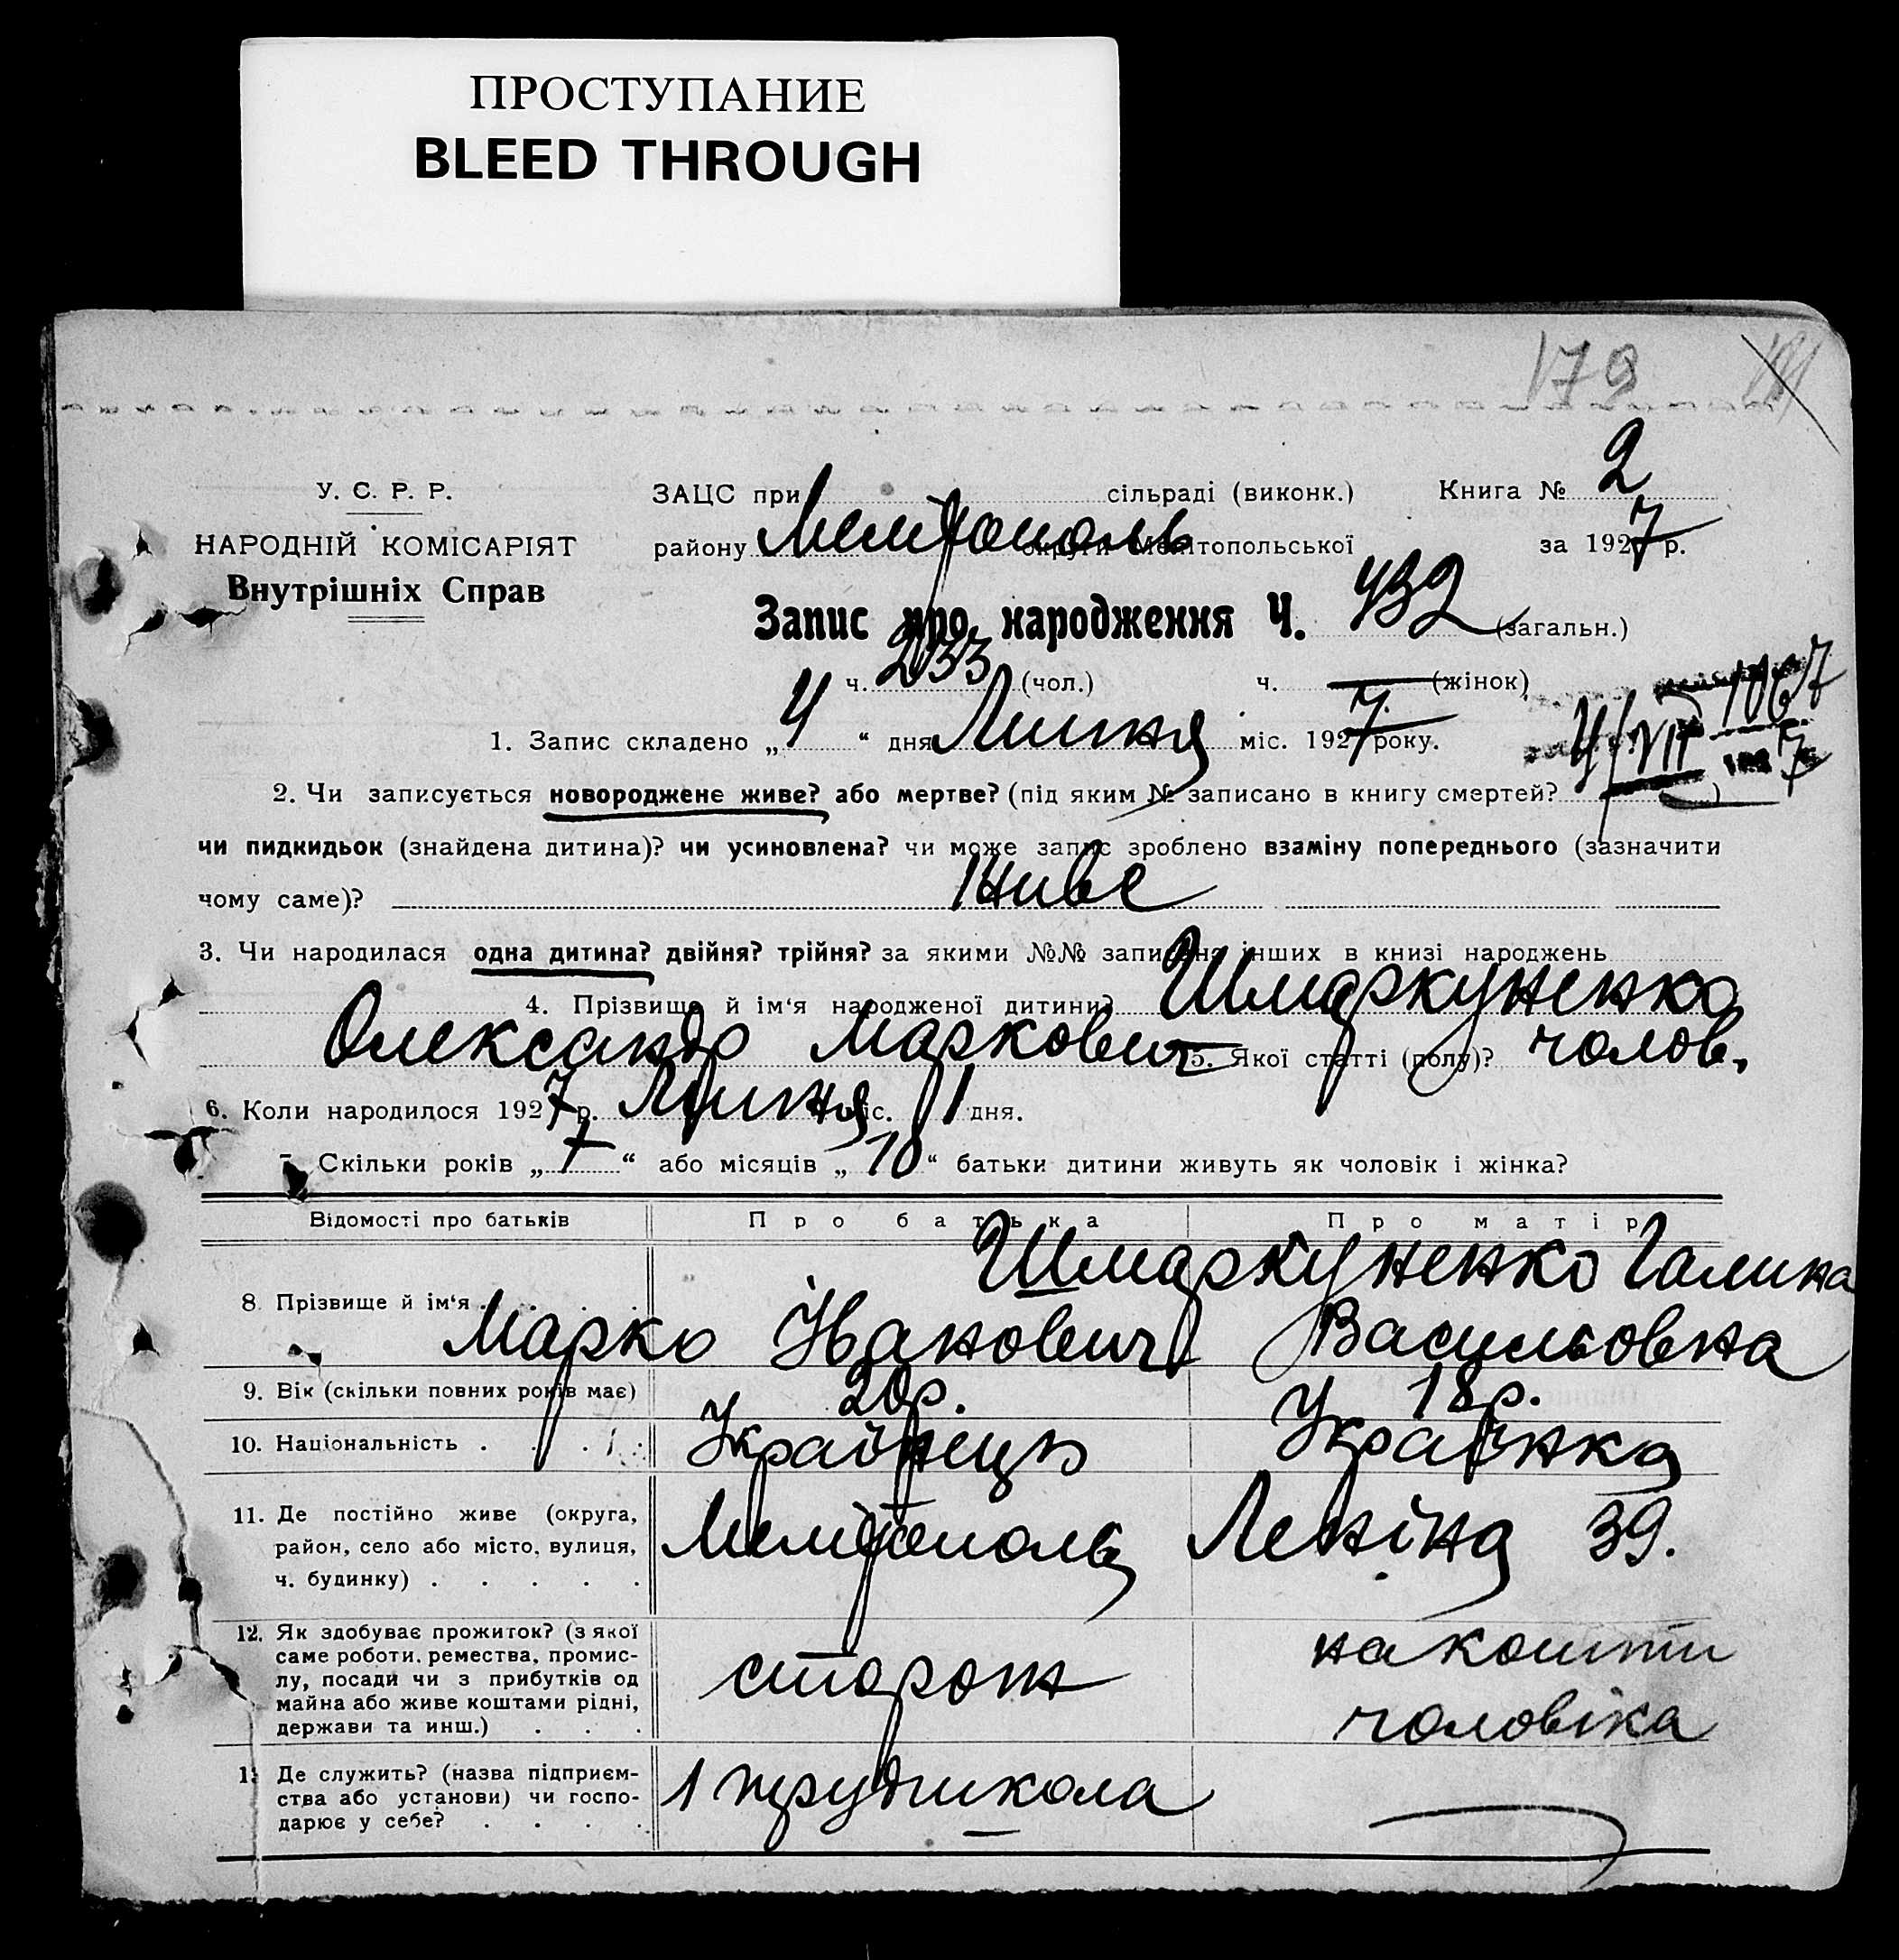 ПРОСТУПАНИЕ
BLEED THROUGH
179
У. С. Р. Р.
НАРОДНІЙ КОМІСАРІЯТ
Внутрішніх Справ
ЗАЦС при сільраді (виконк.) Книга № 2
району Мелітополь округи Мелітопольської за 1927 р.
Запис про народження Ч. 432 (загальн.)
ч. 233 (чол.) ч. — (жінок)
1. Запис складено „4“ дня Липня міс. 1927 року.
4/VII 1067
1927
2. Чи записується новороджене живе? або мертве? (під яким № записано в книгу смертей? )
чи пидкидьок (знайдена дитина)? чи усиновлена? чи може запис зроблено взаміну попереднього (зазначити
чому саме)? Живе
3. Чи народилася одна дитина? двійня? трійня? за якими №№ записано інших в книзі народжень
4. Прізвище й ім‘я народженої дитини? Шмаркуненко
Олександр Маркович 5. Якої статті (полу)? чолов.
6. Коли народилося 1927 р. Липня міс. 1 дня.
7. Скільки років „7“ або місяців „10“ батьки дитини живуть як чоловік і жінка?
Відомості про батьків Про батька Про матір
8. Прізвище й ім‘я . . . . Шмаркуненко Галина
Марко Іванович Васильовна
9. Вік (скільки повних років має) 20р. 18р.
10. Національність . . . . Українець Українка
11. Де постійно живе (округа,
район, село або місто, вулиця,
ч. будинку) . . . . .
Мелітополь Леніна 39.
12. Як здобуває прожиток? (з якої
саме роботи, ремества, промис-
лу, посади чи з прибутків од
майна або живе коштами рідні,
держави та инш.) . . .
сторож
на кошти
чоловіка
13 Де служить? (назва підприєм-
ства або установи) чи госпо-
дарює у себе? . . . .
1 трудшкола